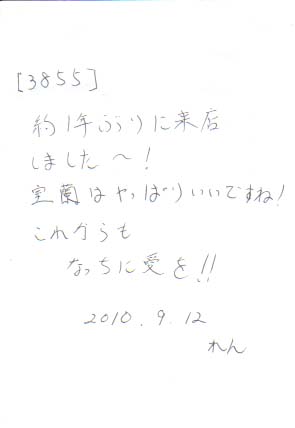 [3855]
約1年ぶりに来店
しました〜!
室蘭はやっぱりいいですね!
これからも
なっちに愛を!!
2010.9.12
れん